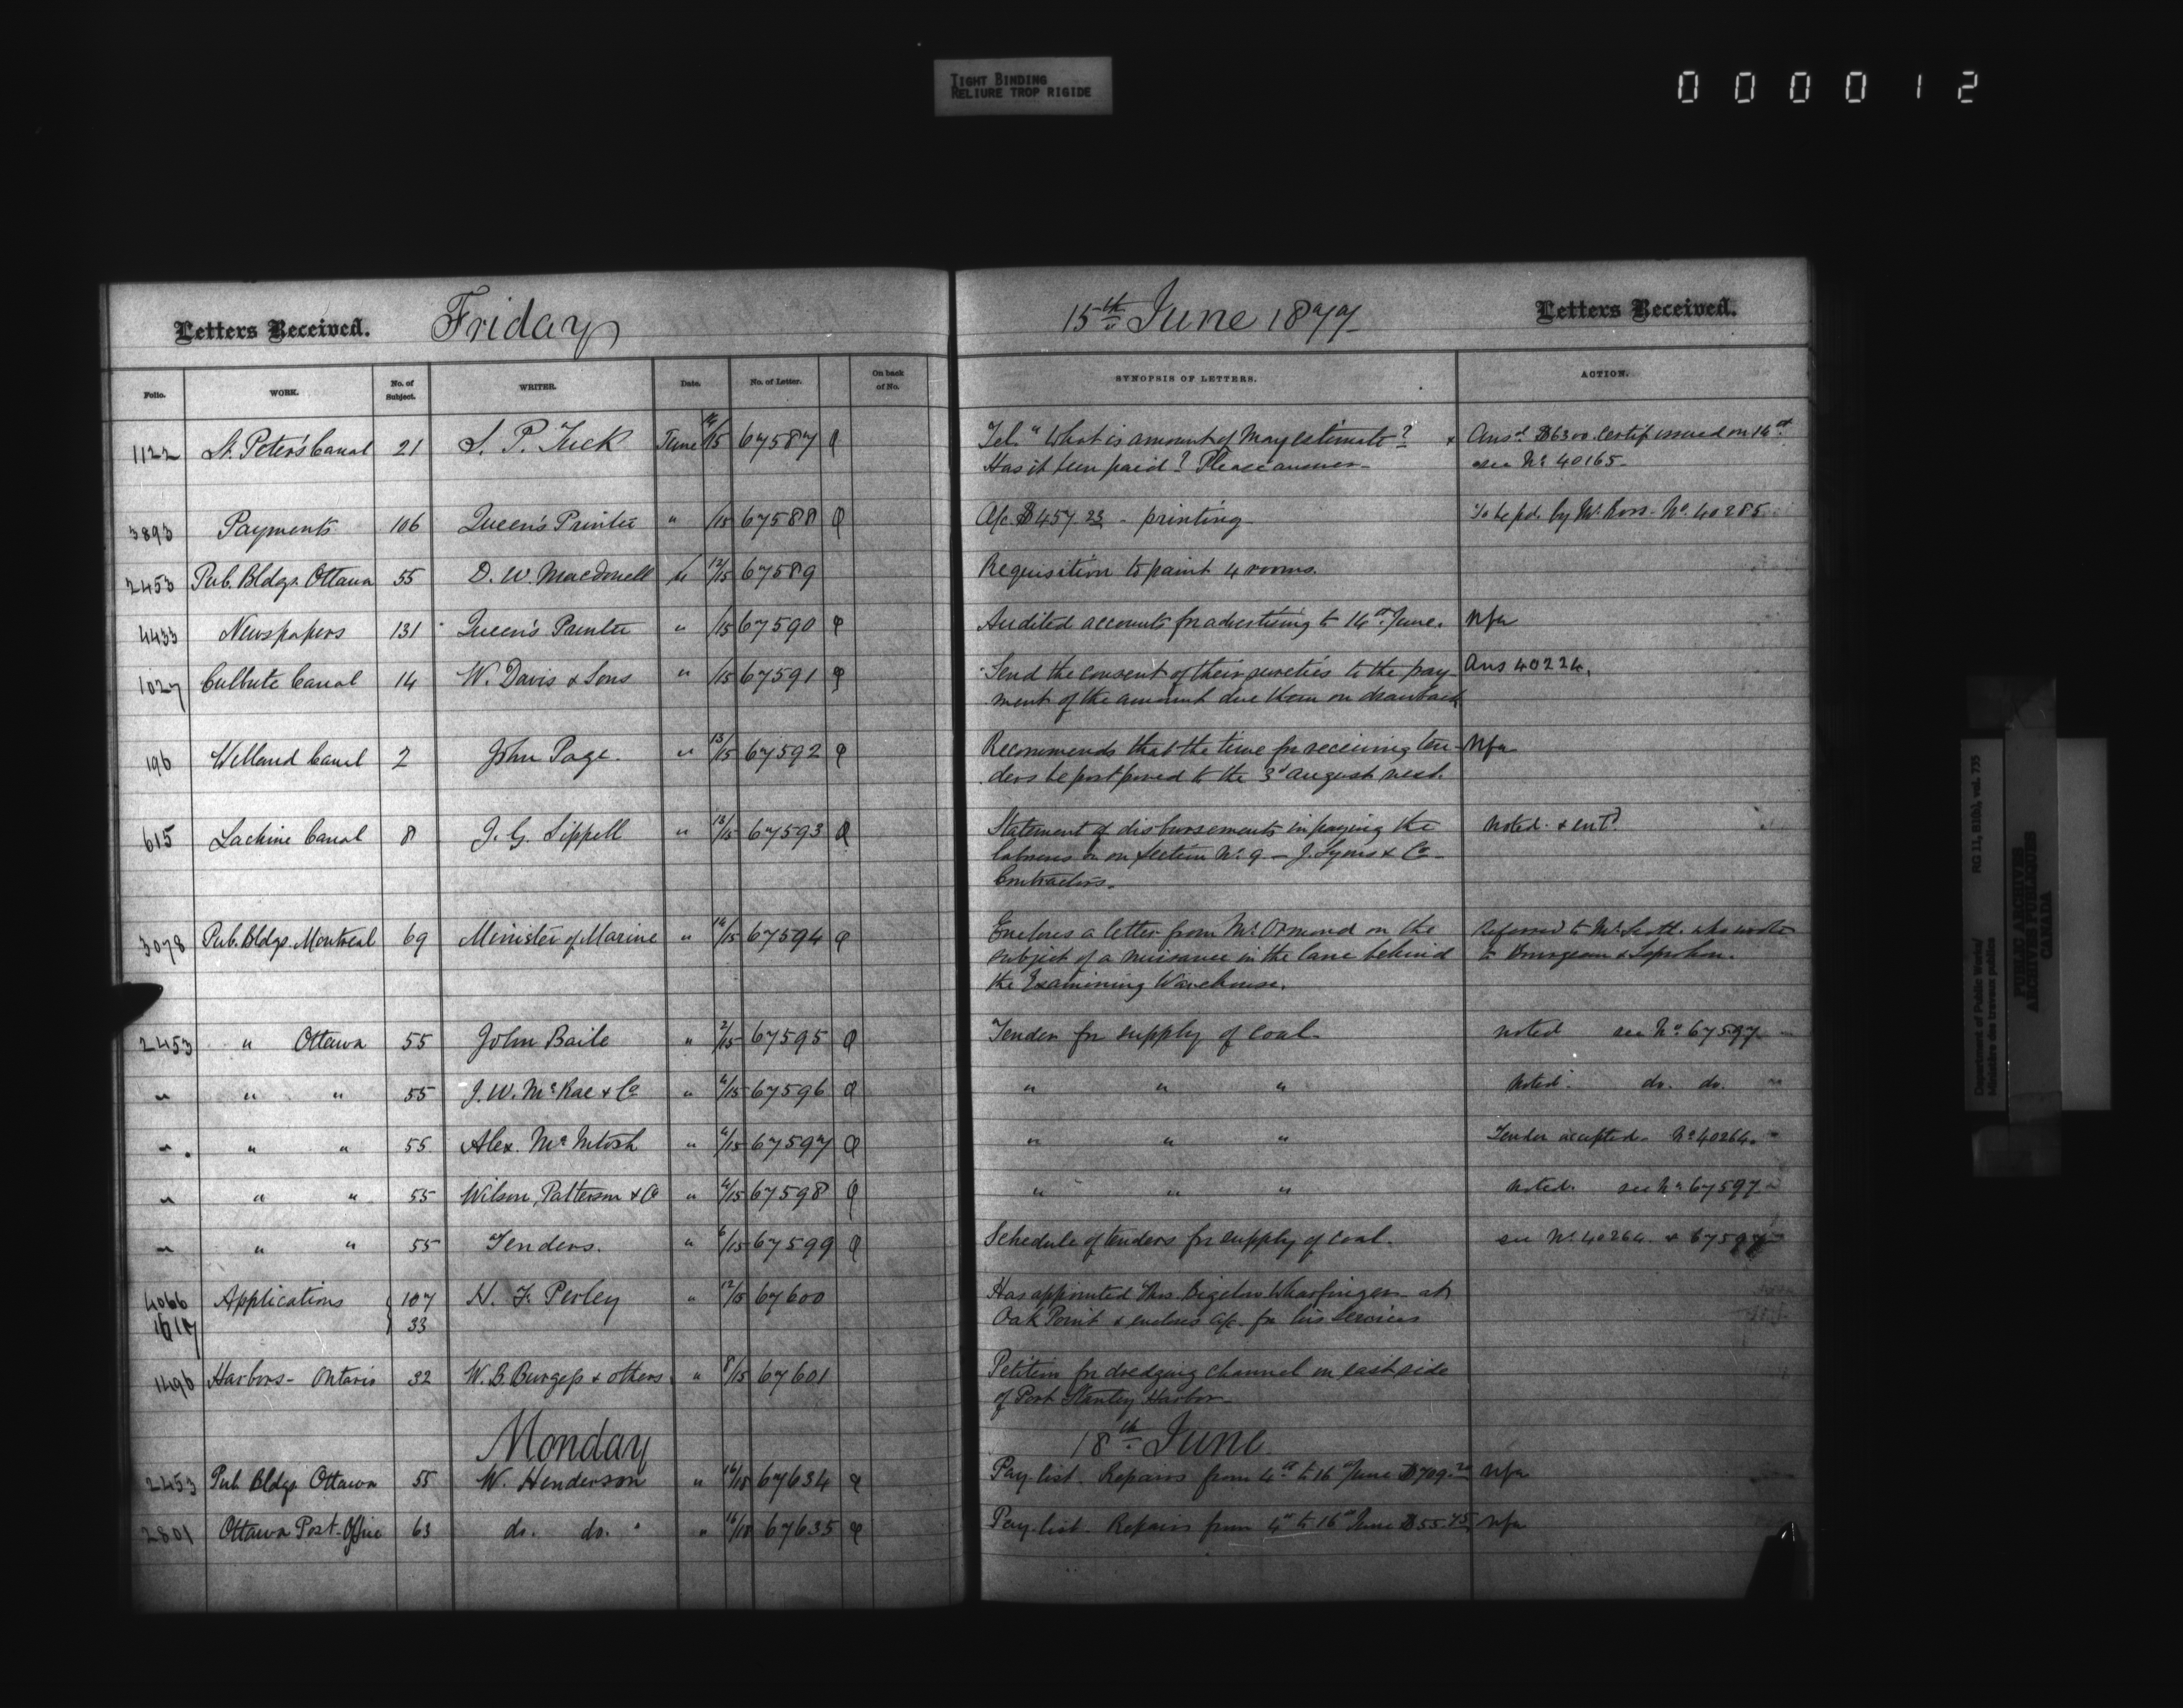 TIGHT BINDING
RELIURE TROP RIGIDE
000012
Letters Received. Friday 15th June 1877 Letters Received.
Folio. WORK. No. of Subject. WRITER. Date. No. of Letter. On back of No. SYNOPSIS OF LETTERS. ACTION.
1122 St. Peter's Canal 21 S. P. Tuck June 14/15 67587 Tel. "What is amount of May estimate? Ansd. $6300. Certif issued on 14th
Has it been paid? Please answer. see No. 40165.
3893 Payments 106 Queen's Printer " /15 67588 A/c $457.23 - printing To be pd. by Mr. Ross. No. 40285
2453 Pub. Bldgs. Ottawa 55 D. W. Macdonell " 12/15 67589 Requisition to paint 4 rooms.
4433 Newspapers 131 Queen's Printer " /15 67590 Audited accounts for advertising to 14th June. Nfa
1027 Culbute Canal 14 W. Davis & Sons " /15 67591 Send the consent of their sureties to the pay- Ans 40224.
ment of the amount due them on drawback
196 Welland Canal 2 John Page. " 13/15 67592 Recommends that the time for receiving ten- Nfa
ders be postponed to the 3d August next.
615 Lachine Canal 8 J. G. Sippell " 13/15 67593 Statement of disbursements in paying the Noted & entd
laborers on Section No. 9 - J. Lyons & Co
Contractors.
3078 Pub. Bldgs. Montreal 69 Minister of Marine " 14/15 67594 Encloses a letter from Mr. Ormond on the Referred to Mr. Scott. who wrote
subject of a nuisance in the lane behind to Bourgeau & Leprohon.
the Examining Warehouse.
2453 " Ottawa 55 John Baile " 2/15 67595 Tender for supply of coal noted see No. 67597
" " " 55 J. W. McRae & Co " /15 67596 " " " Noted. do. do.
" " " 55 Alex. McIntosh " /15 67597 " " " Tender accepted. No. 40264.
" " " 55 Wilson, Patterson & Co " /15 67598 " " " Noted. see No. 67597
" " " 55 Tenders. " 6/15 67599 Schedule of tenders for supply of coal. see No. 40264 & 67597
4066 Applications 107 H. F. Perley " 12/15 67600 Has appointed Thos. Bigelow Wharfinger at
1617 33 Oak Point & encloses a/c. for his services
1496 Harbors - Ontario 32 W. B. Burgess & others " 8/15 67601 Petition for dredging channel on east side
of Port Stanley Harbor.
Monday 18th June
2453 Pub. Bldgs Ottawa 55 W. Henderson " 16/18 67634 Pay list. Repairs from 4th to 16th June $709.20 Nfa
2801 Ottawa Post-Office 63 do. do. " 16/18 67635 Pay list. Repairs from 4th to 16th June $55.75 Nfa
Department of Public Works/ RG 11, B1(b), vol. 735
Ministère des travaux publics
PUBLIC ARCHIVES
ARCHIVES PUBLIQUES
CANADA